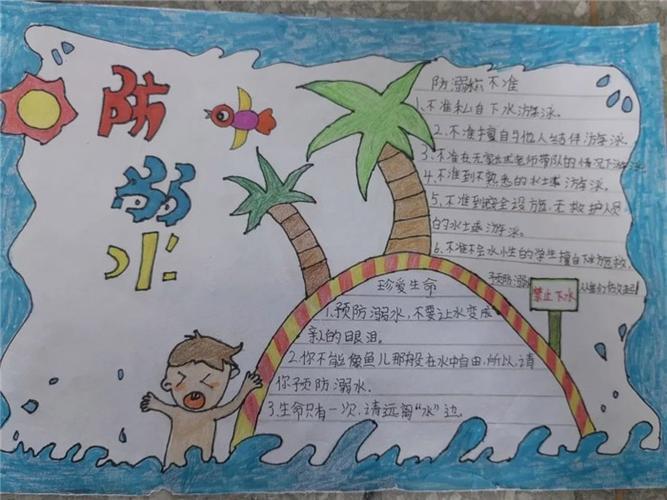 防
溺
水
防溺水六不准
1、不准私自下水游泳。
2、不准擅自与他人结伴游泳。
3、不准在无家长或老师带队的情况下游泳
4、不准到不熟悉的水域游泳。
5、不准到无安全设施、无救护人员
的水域游泳。
6、不准不会水性的学生擅自下水施救。
预防溺
禁止下水
珍爱生命
1.预防溺水,不要让水变成
亲人的眼泪。
2.你不能像鱼儿那般在水中自由,所以,请
你预防溺水.
3.生命只有一次,请远离“水”边.